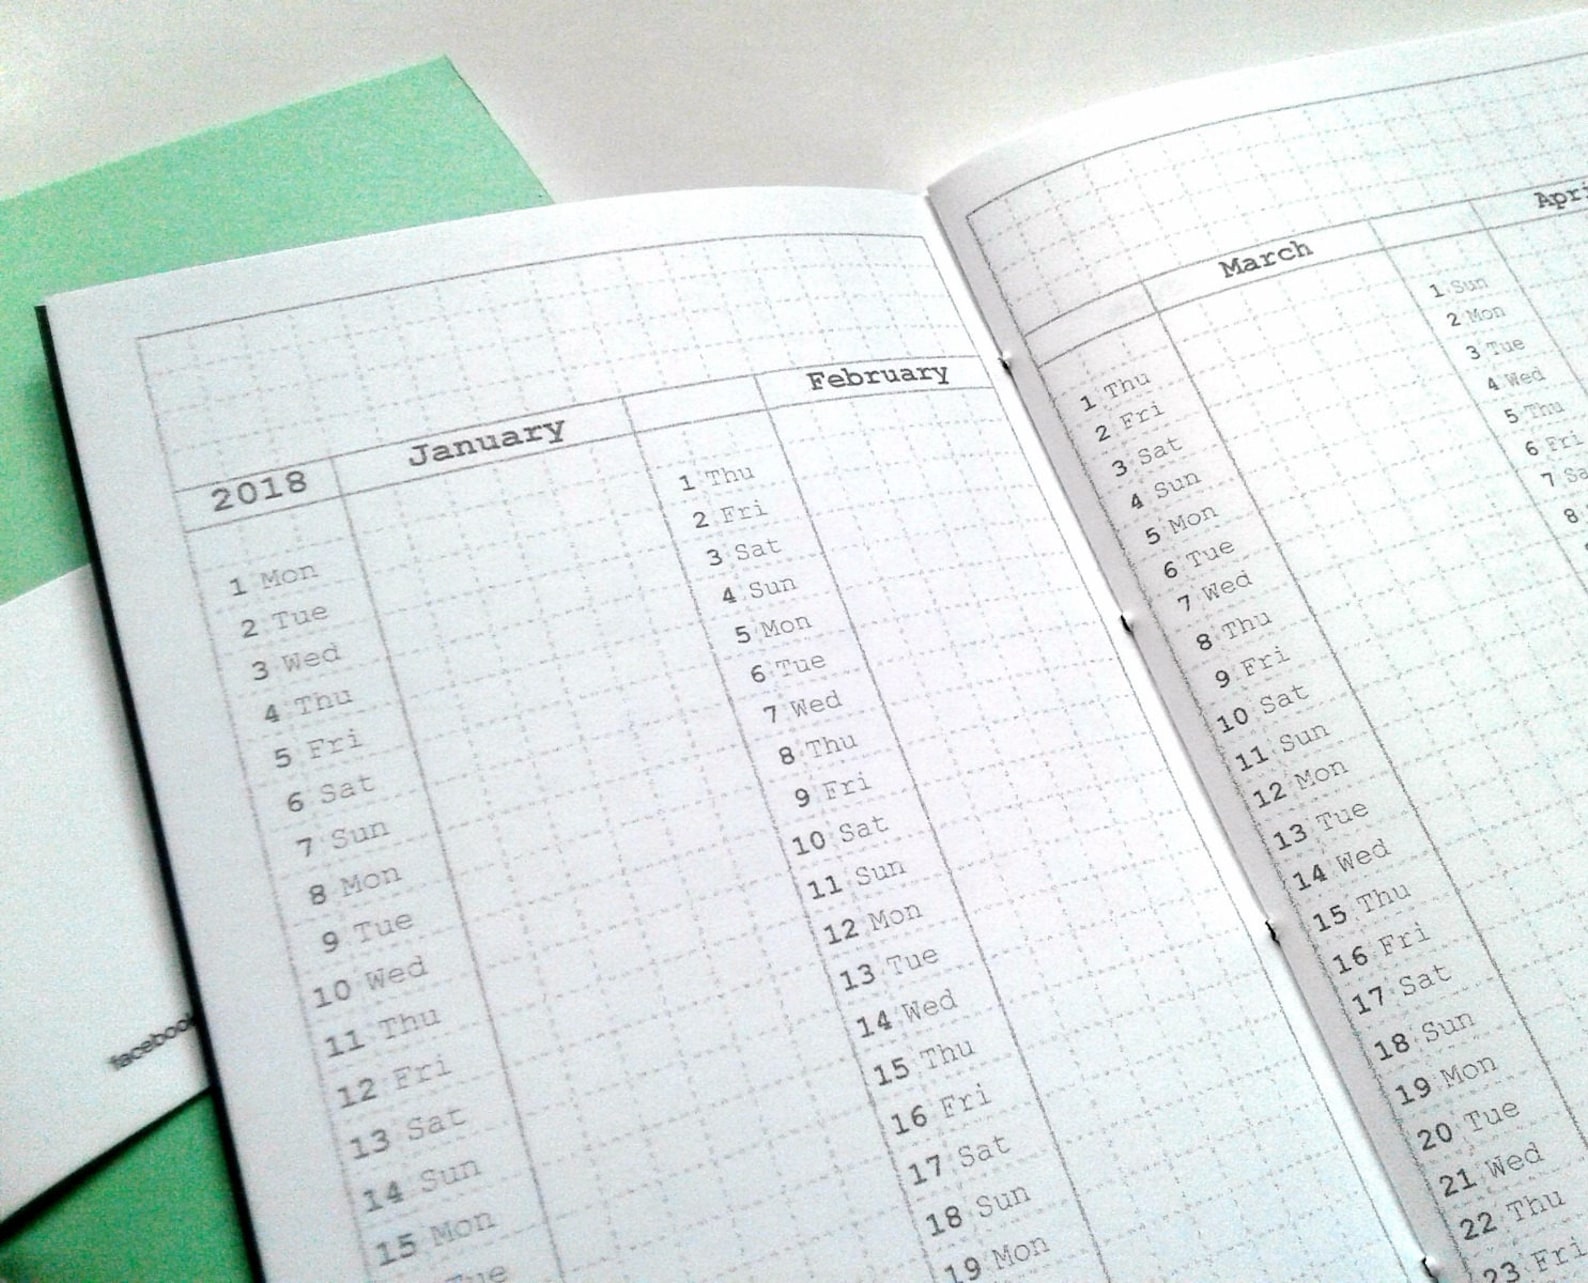 2018
January
1 Mon
2 Tue
3 Wed
4 Thu
5 Fri
6 Sat
7 Sun
8 Mon
9 Tue
10 Wed
11 Thu
12 Fri
13 Sat
14 Sun
15 Mon
Tue
February
1 Thu
2 Fri
3 Sat
4 Sun
5 Mon
6 Tue
7 Wed
8 Thu
9 Fri
10 Sat
11 Sun
12 Mon
13 Tue
14 Wed
15 Thu
16 Fri
17 Sat
18 Sun
19 Mon
March
1 Thu
2 Fri
3 Sat
4 Sun
5 Mon
6 Tue
7 Wed
8 Thu
9 Fri
10 Sat
11 Sun
12 Mon
13 Tue
14 Wed
15 Thu
16 Fri
17 Sat
18 Sun
19 Mon
20 Tue
21 Wed
22 Thu
23 Fri
Apri
1 Sun
2 Mon
3 Tue
4 Wed
5 Thu
6 Fri
7 Sa
8
facebook